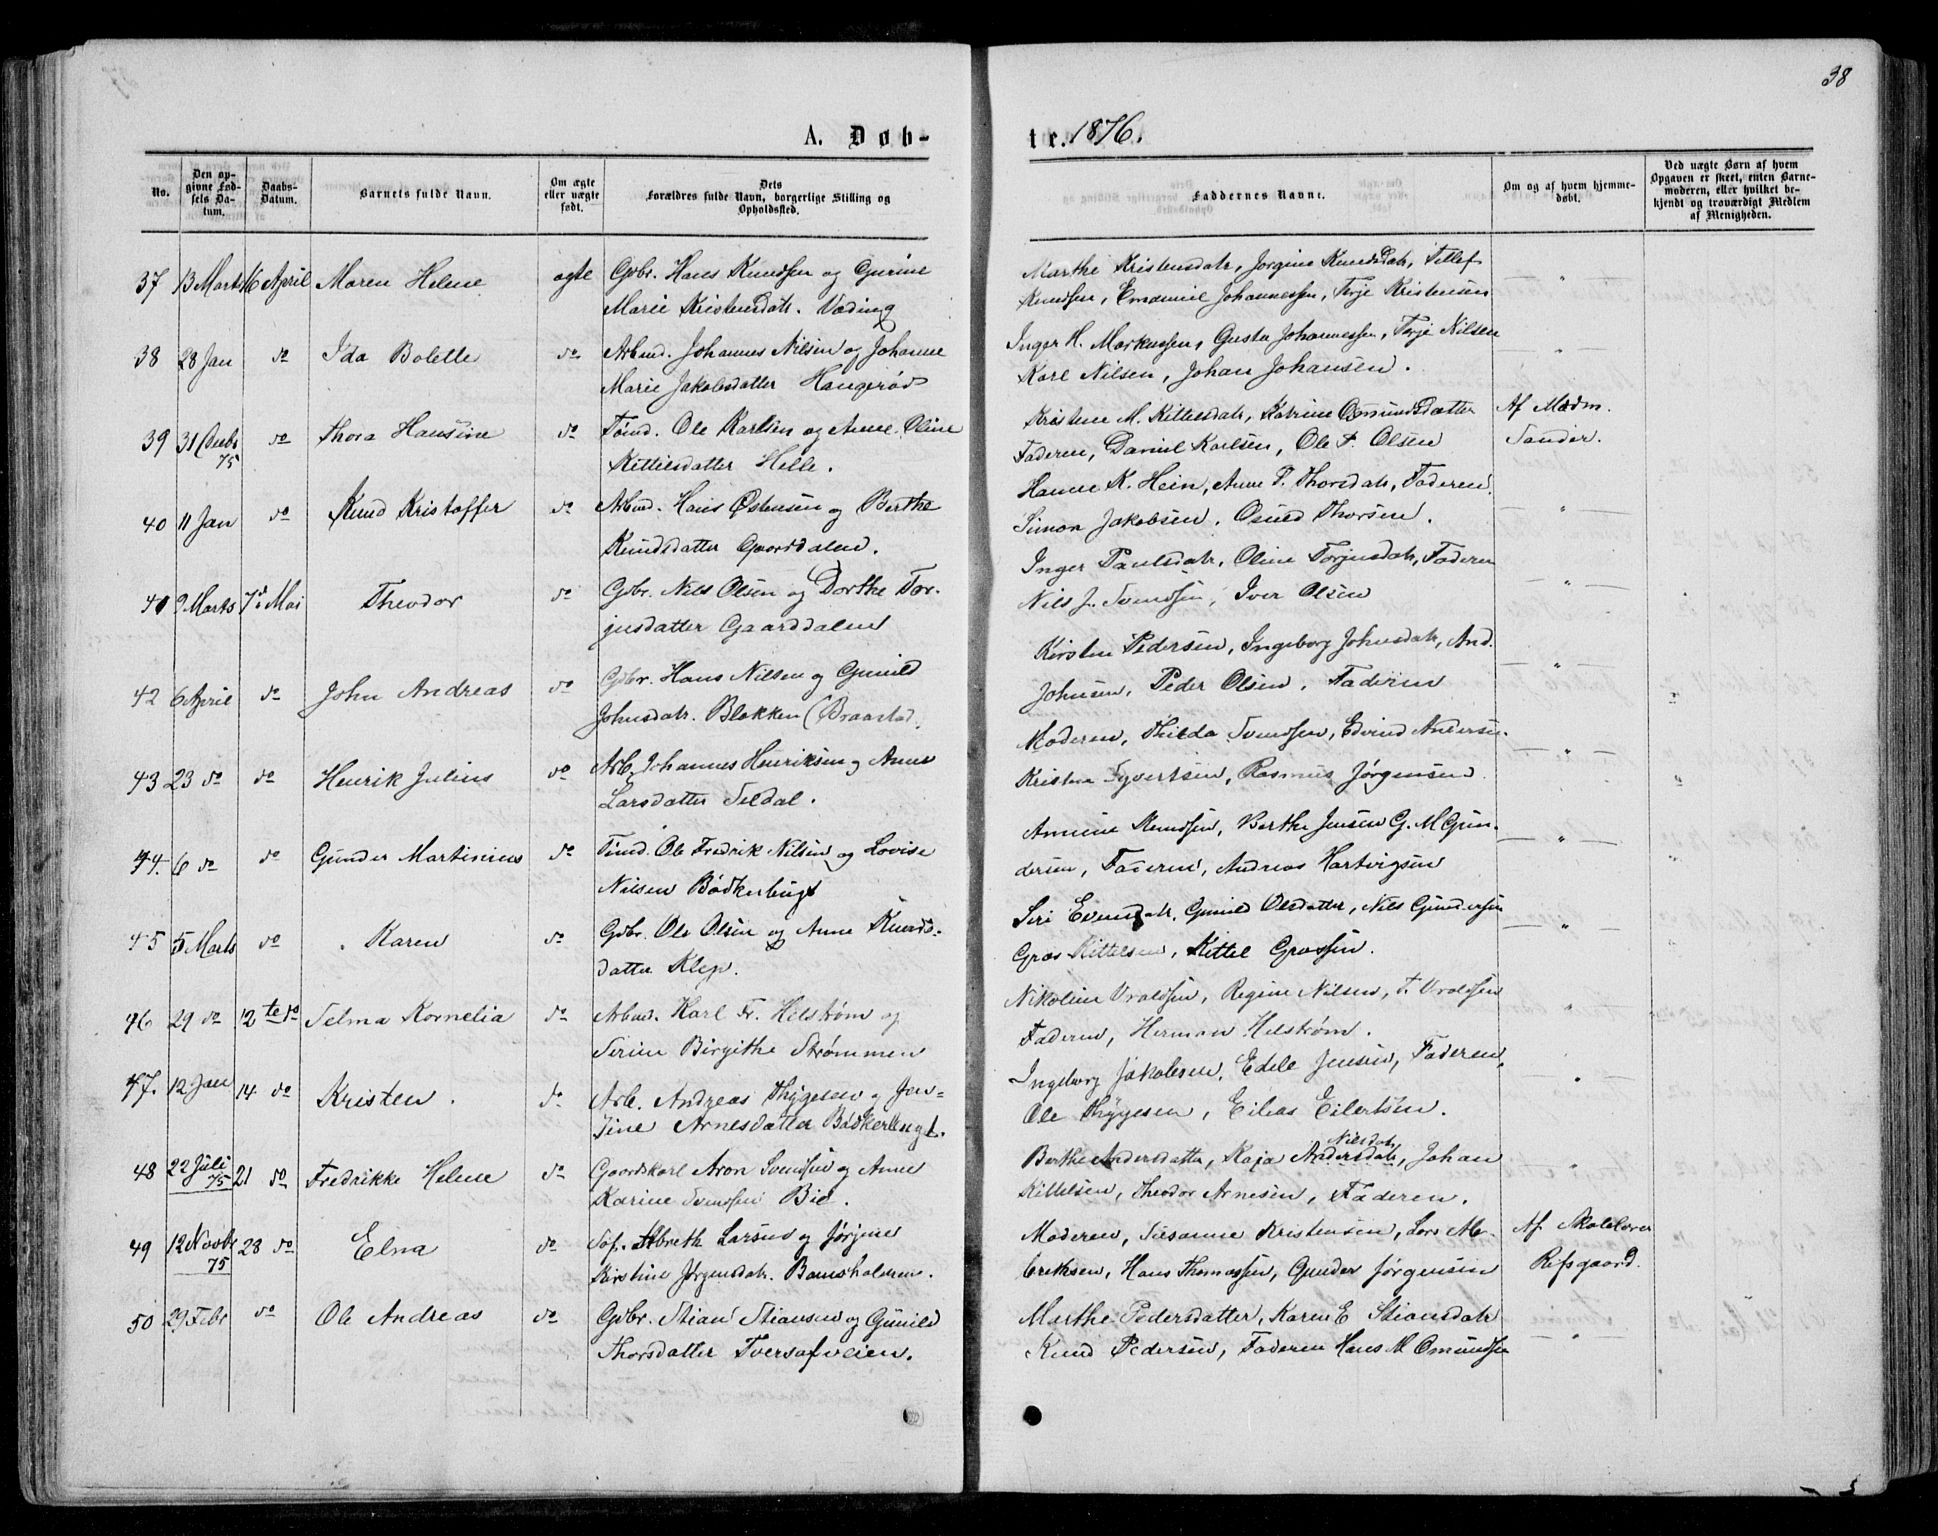 38
A. Døb-
te. 1876.
No.
Den op-
givne Fød-
sels Da-
tum.
Daabs-
Datum.
Barnets fulde Navn.
Om ægte
eller uægte
født.
Dets
Forældres fulde Navn, borgerlige Stilling og
Opholdssted.
Faddernes Navne.
Om og af hvem hjemme-
døbt.
Ved uægte Børn af hvem
Opgaven er skeet, enten Barne-
moderen, eller hvilket be-
kjendt og troværdigt Medlem
af Menigheden.
37 13 Marts 16 April Maren Helene ægte Gbr. Hans Knudsen og Gurine
Marie Kristensdatr. Væding
Marthe Kristensdatr, Jorgine Knudsdatr, Detlef
Knudsen, Emanuel Johannessen, Terje Kristensen "
38 28 Jan do Ida Bolette do Arbmd. Johannes Nilsen og Johanne
Marie Jakobsdatter Haugerød
Inger H. Markussen, Gusta Johannessen, Terje Nilsen
Karl Nilsen, Johan Johansen. "
39 31 Decbr 75 do Thora Hansine do Tømd. Ole Karlsen og Anne Oline
Kittilsdatter Helle.
Kristine M. Kittilsdatr, Katrine Osmundsdatter
Faderen, Daniel Karlsen, Ole T. Olsen
Af Mædm.
Sander.
40 11 Jan do Knud Kristoffer do Arbmd. Hans Østensen og Berthe
Knudsdatter Gaarddalen.
Hanne K. Hein, Anne T. Thorsdatr, Faderen,
Simon Jakobsen, Osuld Thorsen. "
41 9 Marts 7de Mai Theodor do Gbr. Nils Olsen og Dorthe Tor-
jusdatter Gaarddalen
Inger Paulsdatr, Oline Torjusdatr, Faderen
Nils J. Svendsen, Iver Olsen "
42 6 April do John Andreas do Gbr. Hans Nilsen og Gunild
Johnsdatr. Blokken (Braastad
Kirsten Pedersen, Ingeborg Johnsdatr, And.
Johnsen, Peder Olsen, Faderen "
43 23 do do Henrik Julius do Arb. Johannes Henriksen og Anne
Larsdatter Seldal.
Moderen, Thilda Svendsen, Edvind Andersen
Kristen Syvertsen, Rasmus Jørgensen "
44. 6 do do Gunder Martinius do Tømd. Ole Fredrik Nilsen og Lovise
Nilsen Bødkerbugt
Annine Knudsen, Berthe Jensen G. M Gun-
dersen, Faderen, Andreas Hartvigsen "
45 5 Marts do Karen do Gbr. Ole Olsen og Anne Knuds-
datter Klep.
Siri Evensdatr, Gunild Olsdatter, Nils Gundersen
Gros Kittelsen, Kittel Grossen. "
46 29 do 12te do Selma Kornelia do Arbmd. Karl Fr. Helstrøm og
Serine Birgithe Strømmen
Nikoline Uraldsen, Regine Nilsen, T. Uraldsen
Faderen, Herman Helstrøm. "
47. 12 Jan 14 do Kristen. do Arb. Andreas Thygesen og Jen-
sine Arnesdatter Bødkerbugt.
Ingeborg Jakobsen, Edele Jensen, Faderen,
Ole Thygesen, Eilias Eilertsen. "
48 22 Juli 75 21 do Fredrikke Helene do Gaardskarl Aron Svendsen og Anne
Karine Svendsen Bie.
Nilsdatr
Berthe Andersdatter, Kaja Andersdatr, Johan
Kittelsen, Theodor Arnesen, Faderen. "
49 12 Novbr 75 28 do Elna do Søf. Albreth Larsen og Jørgine
Kirstine Jørgensdatr. Bamsholmen.
Moderen, Susanne Kristensen, Lars Al-
brethsen, Hans Thomassen, Gunder Jørgensen
Af Skolelærer
Refsgaard.
50 29 Febr do Ole Andreas do Gbr. Stian Stiansen og Gunild
Thorsdatter Tversafveien.
Marthe Pedersdatter, Karen E Stiansdatr
Knud Pedersen, Faderen Hans M. Omundsen "